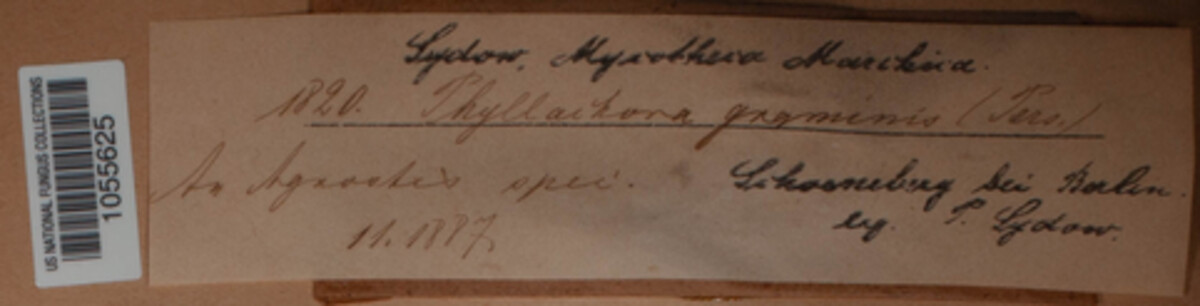 US NATIONAL FUNGUS COLLECTIONS
1055625
Sydow, Mycotheca Marchica.
1820. Phyllachora graminis (Pers.)
An Agrostis spec.
11.1887.
Schoeneberg bei Berlin.
leg. P. Sydow.